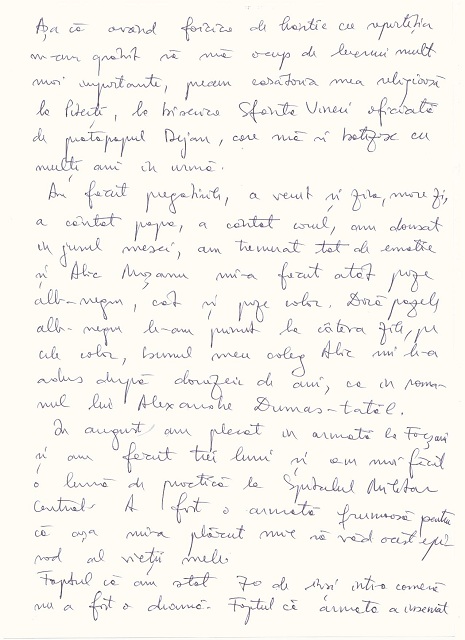 Așa că având foaia de hârtie cu repartiția
m-am grăbit să mă ocup de lucruri mult
mai importante, precum căsătoria mea religioasă
la Pitești, la biserica Sfânta Vineri oficiată
de protopopul Dejan, care mă și botezase cu
mulți ani în urmă.
Am făcut pregătirile, a venit și ziua, marea zi,
a cântat popa, a cântat corul, am dansat
în jurul mesei, am tremurat tot de emoție
și Alic Mușanu mi-a făcut atât poze
alb-negru, cât și poze color. Dacă pozele
alb-negru le-am primit la câteva zile, pe
cele color, bunul meu coleg Alic mi le-a
adus după douăzeci de ani, ca în roma-
nul lui Alexandre Dumas-tatăl.
În august am plecat în armată la Focșani
și am făcut trei luni și am mai făcut
o lună de practică la Spitalul Militar
Central. A fost o armată frumoasă pentru
că așa mi-a plăcut mie să văd acest epi-
sod al vieții mele
Faptul că am stat 70 de inși într-o cameră
nu a fost o dramă. Faptul că armata a însemnat